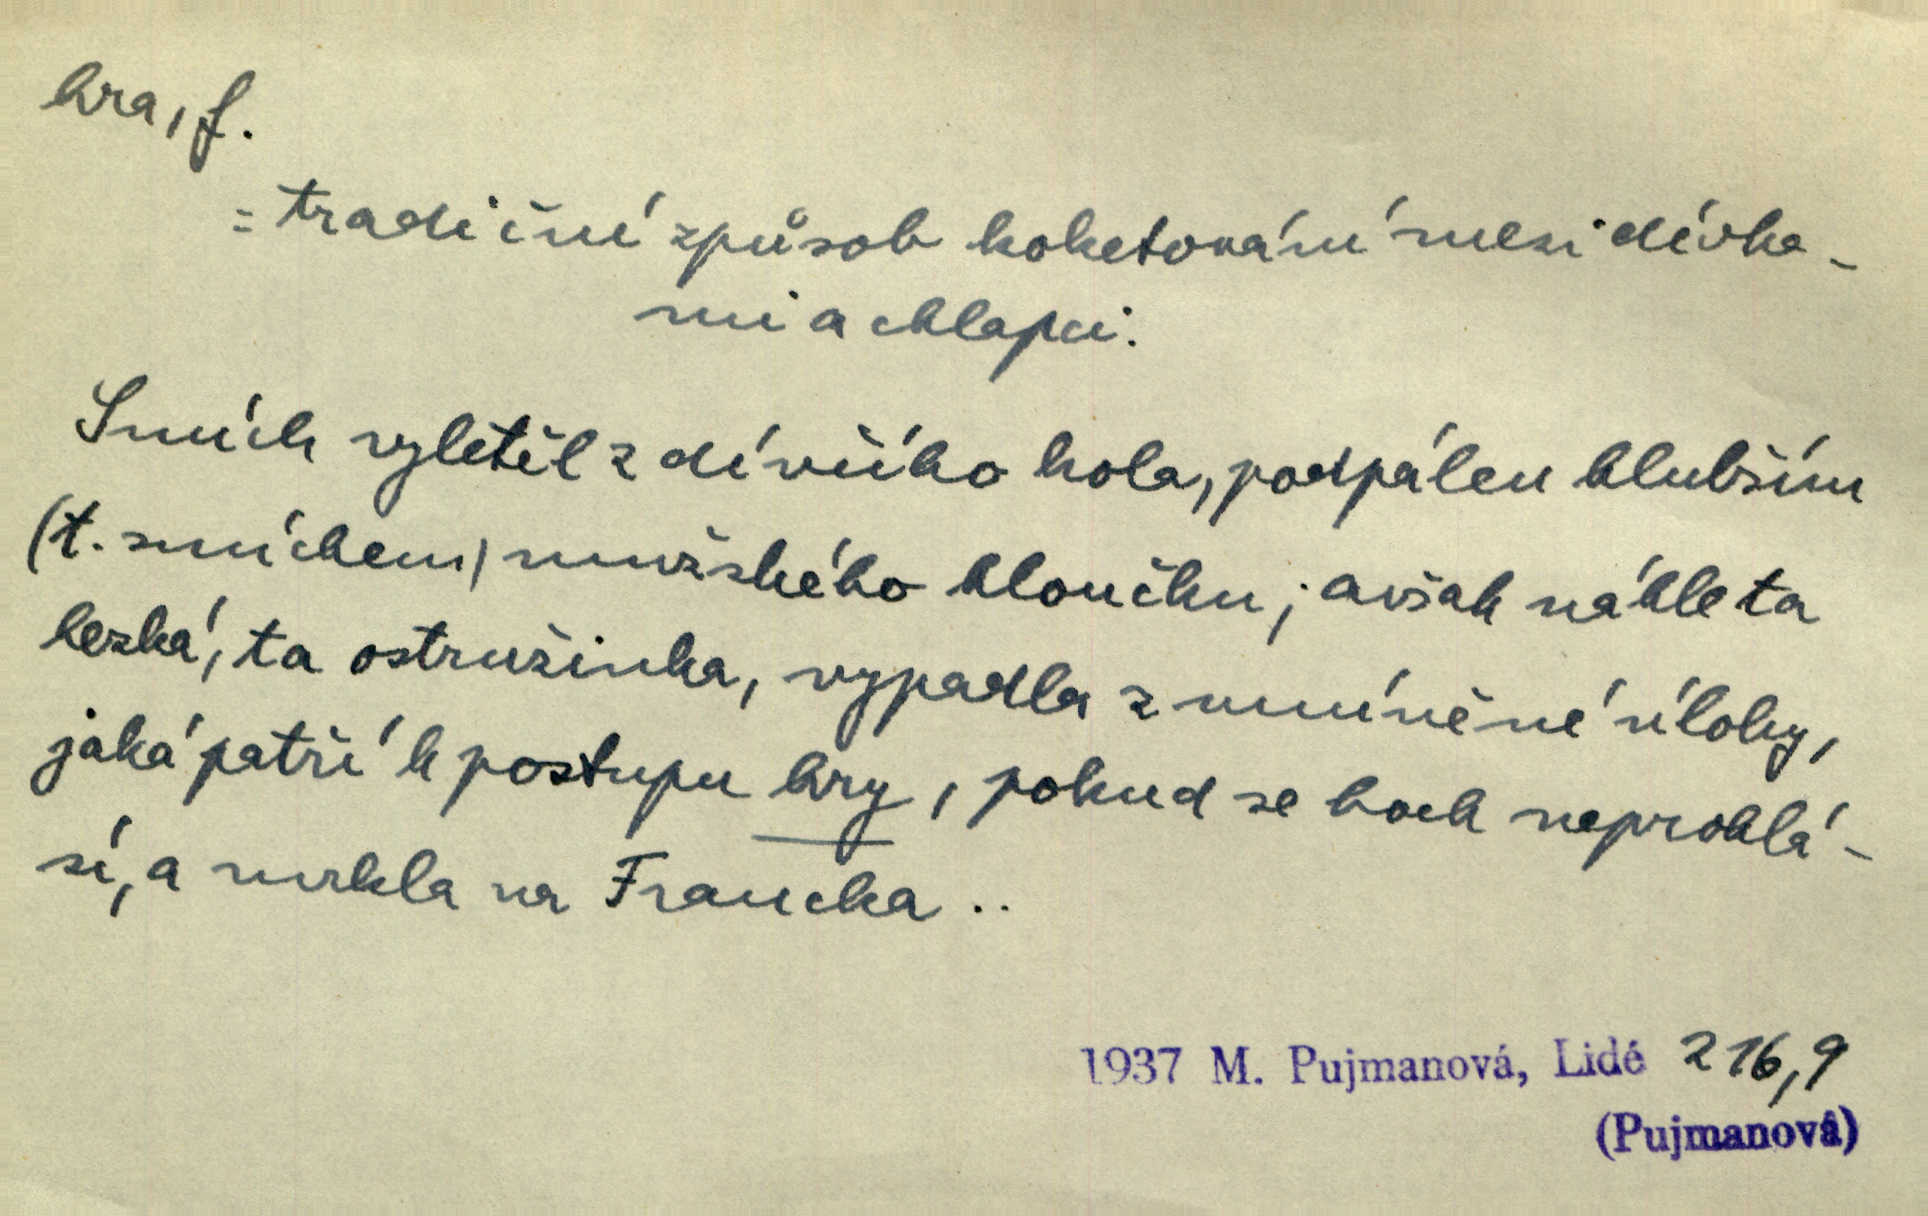 hra, f.
= tradiční způsob koketování mezi dívka-
mi a chlapci.
Smích vyletěl z dívčího kola, podpálen hlubším
(t. smíchem) mužského hloučku; avšak náhle ta
hezká, ta ostružinka, vypadla z umíněné úlohy,
jaká patří k postupu hry, pokud se hoch neprohlá-
sí, a mrkla na Francka ..
1937 M. Pujmanová, Lidé 216,9
(Pujmanová)